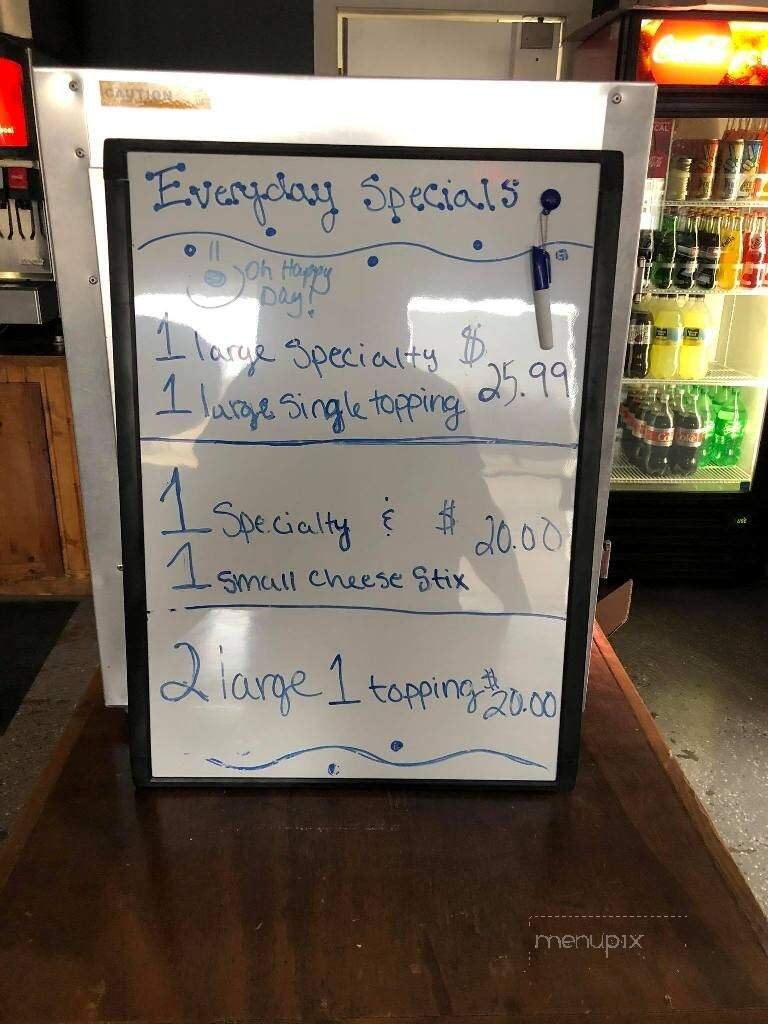 CAUTION
Coca-Cola
Everyday Specials
Oh Happy
Day!
1 large specialty $
25.99
1 large single topping
1 Specialty & $ 20.00
1 small cheese stix
2 large 1 topping $20.00
menupix